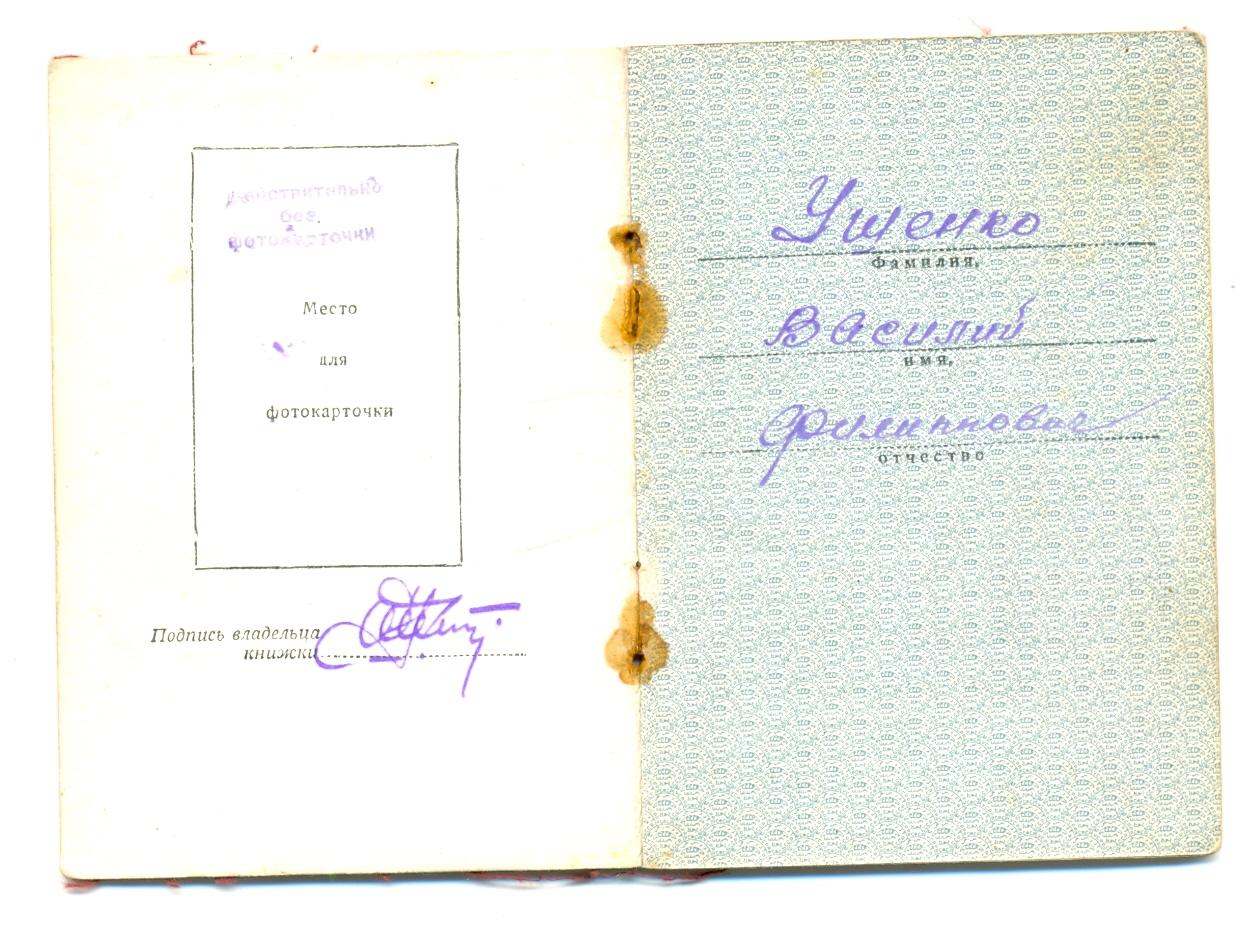 Действительно
без
фотокарточки
Место
для
фотокарточки
Подпись владельца
книжки
Ушенко
фамилия,
Василий
имя,
Филиппович
отчество